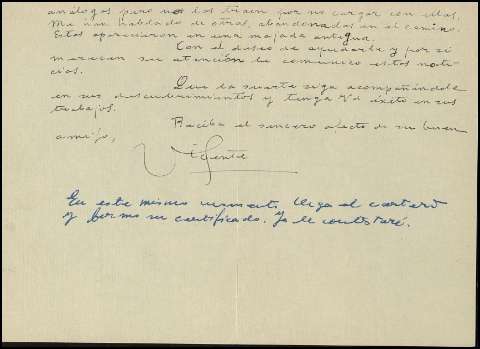 análogas pero no los traen por no cargar con ellas.
Me han hablado de otras, abandonadas en el camino.
Estas aparecieron en una majada antigua.
Con el deseo de ayudarle y por si
merecen su atención le comunico estas noti-
cias.
Que la suerte siga acompañándole
en sus descubrimientos y tenga Vd éxito en sus
trabajos.
Reciba el sincero afecto de su buen
amigo,
Vicente
En este mismo momento llega el cartero
y firmo su certificado. Ya le contestaré.